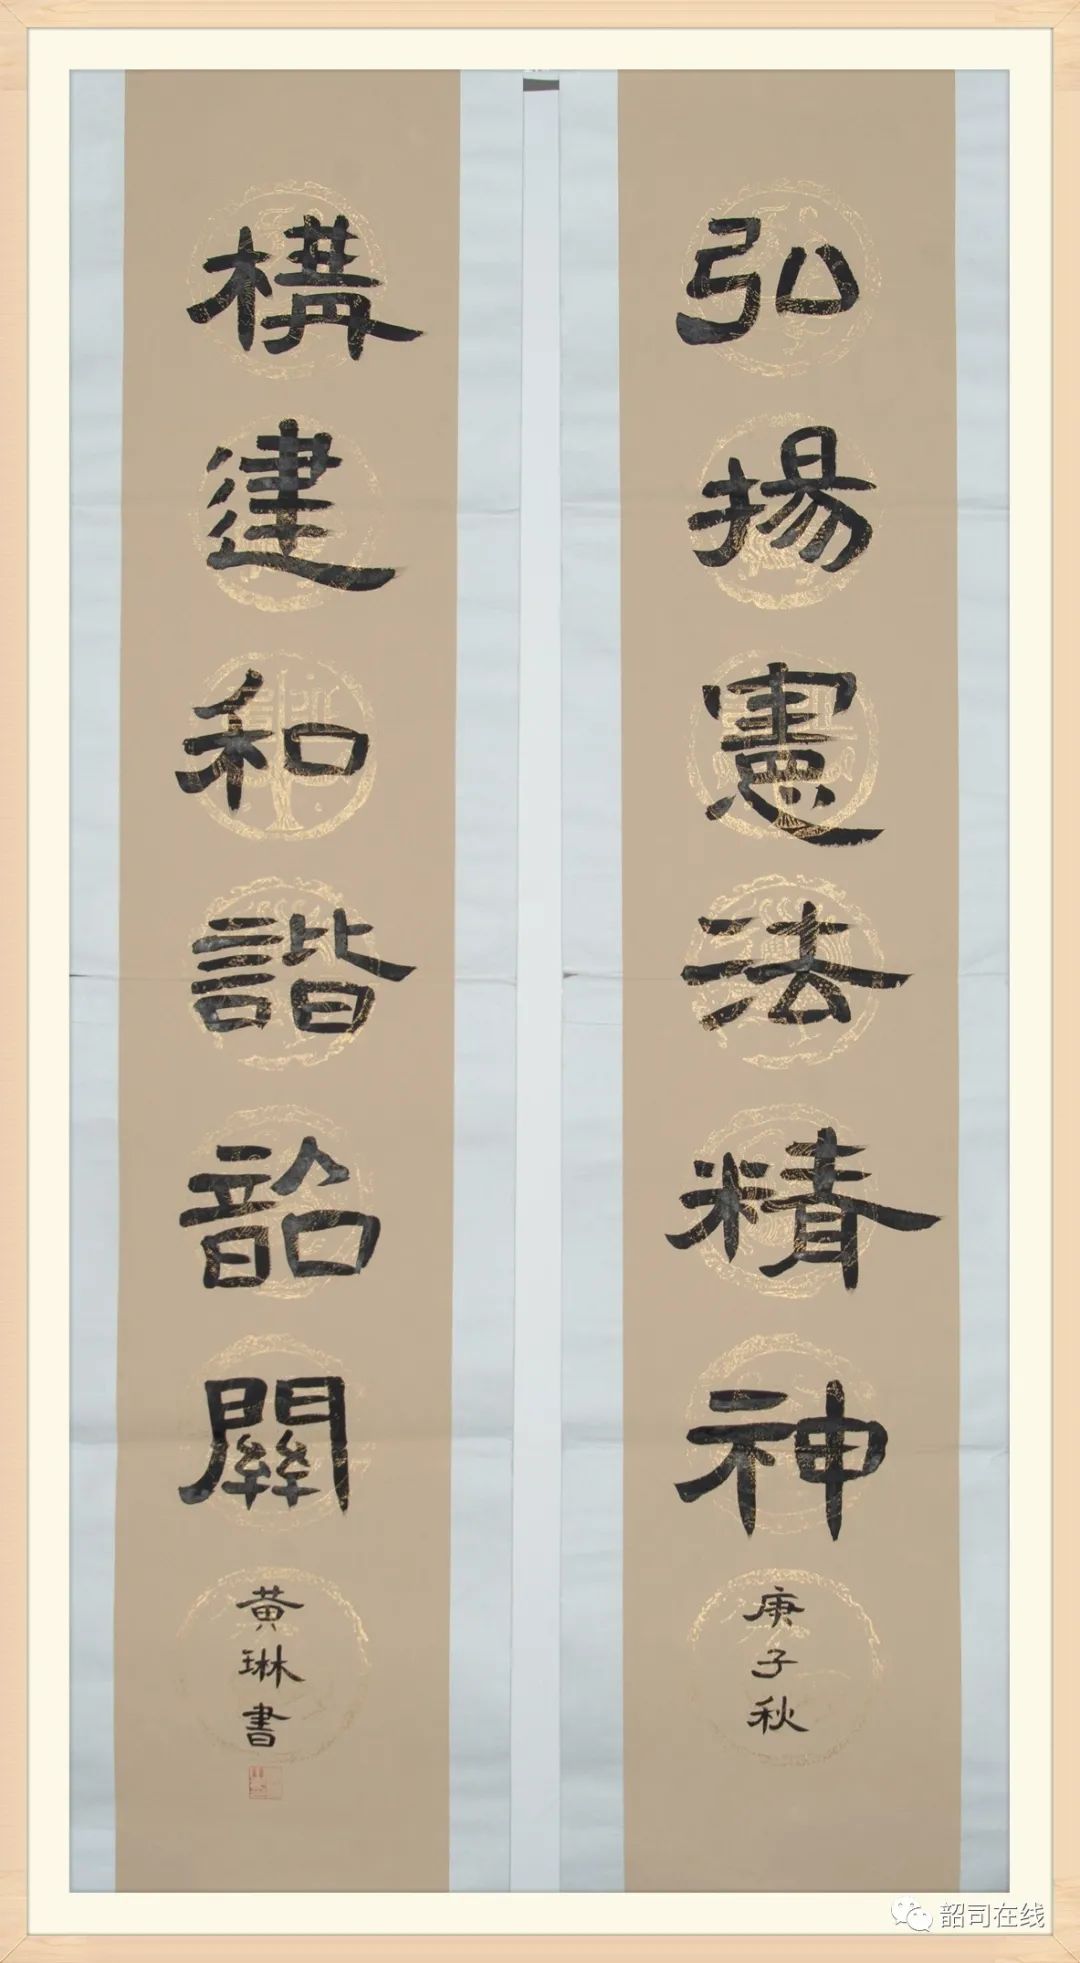 弘揚憲法精神
庚子秋
構建和諧韶關
黄琳書
韶司在线